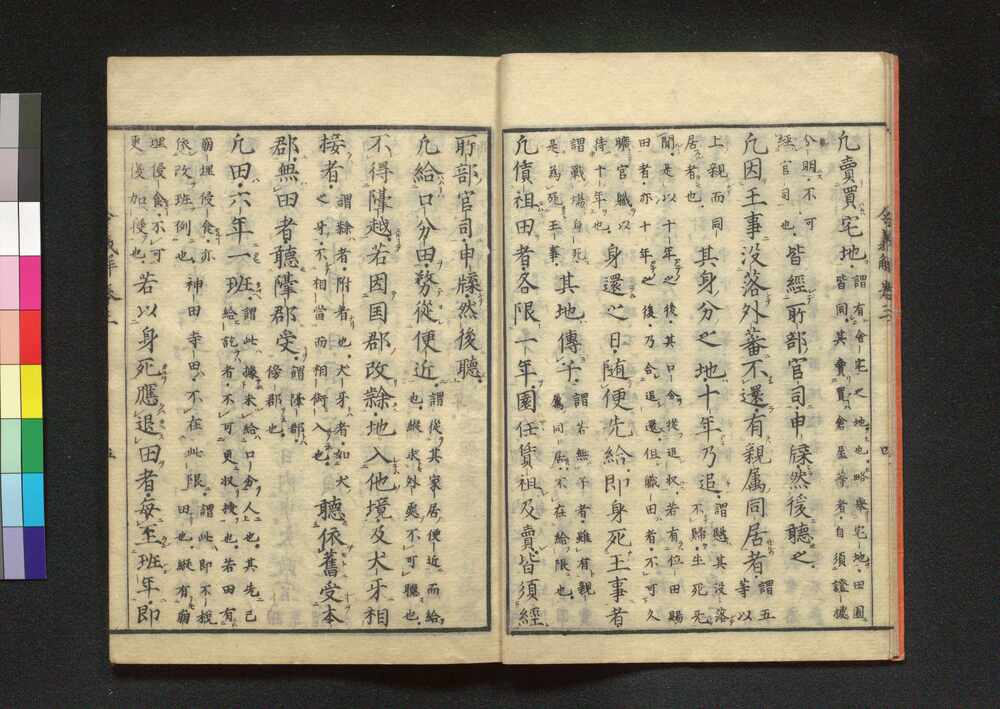 凡賣買宅地
謂有舍宅之地也略擧宅地田園
皆同其賣買倉屋等者自須證據
分明不可
經官司也
皆經所部官司申牒然後聽之
凡因王事没落外蕃不還有親属同居者
謂五
等以
上親而同
居者也
其身分之地十年乃追
謂懸其没落
不歸生死
聞是以十年之後其口分合從還収若有位田賜
田者亦十年之後乃合追還但職田者不可久
曠官職以
待十年也
身還之日随便先給即身死王事者
謂戰場身死
是爲死王事
其地傳子
謂若無子者雖有親
属同居不在給限也
凡賃租田者各限一年園任賃租及賣皆須經
令義解巻三
四
所部官司申牒然後聽
凡給口分田務從便近
謂從其家居便近而給
也縱求外奥不可聽也
不得隔越若因国郡改隷地入他境及犬牙相
接者
謂隷者附著也犬牙者如犬
之牙不相當而相銜入也
聽依舊受本
郡無田者聽隔郡受
謂隣郡
傍郡也
凡田六年一班
謂此據未給口分人也其先已
給訖者不可更収授也若田有
崩埋侵食亦
依改班例也
神田寺田不在此限
謂此即不税
田也縱有崩
埋侵食不可
更復加授也
若以身死應退田者毎至班年即
五